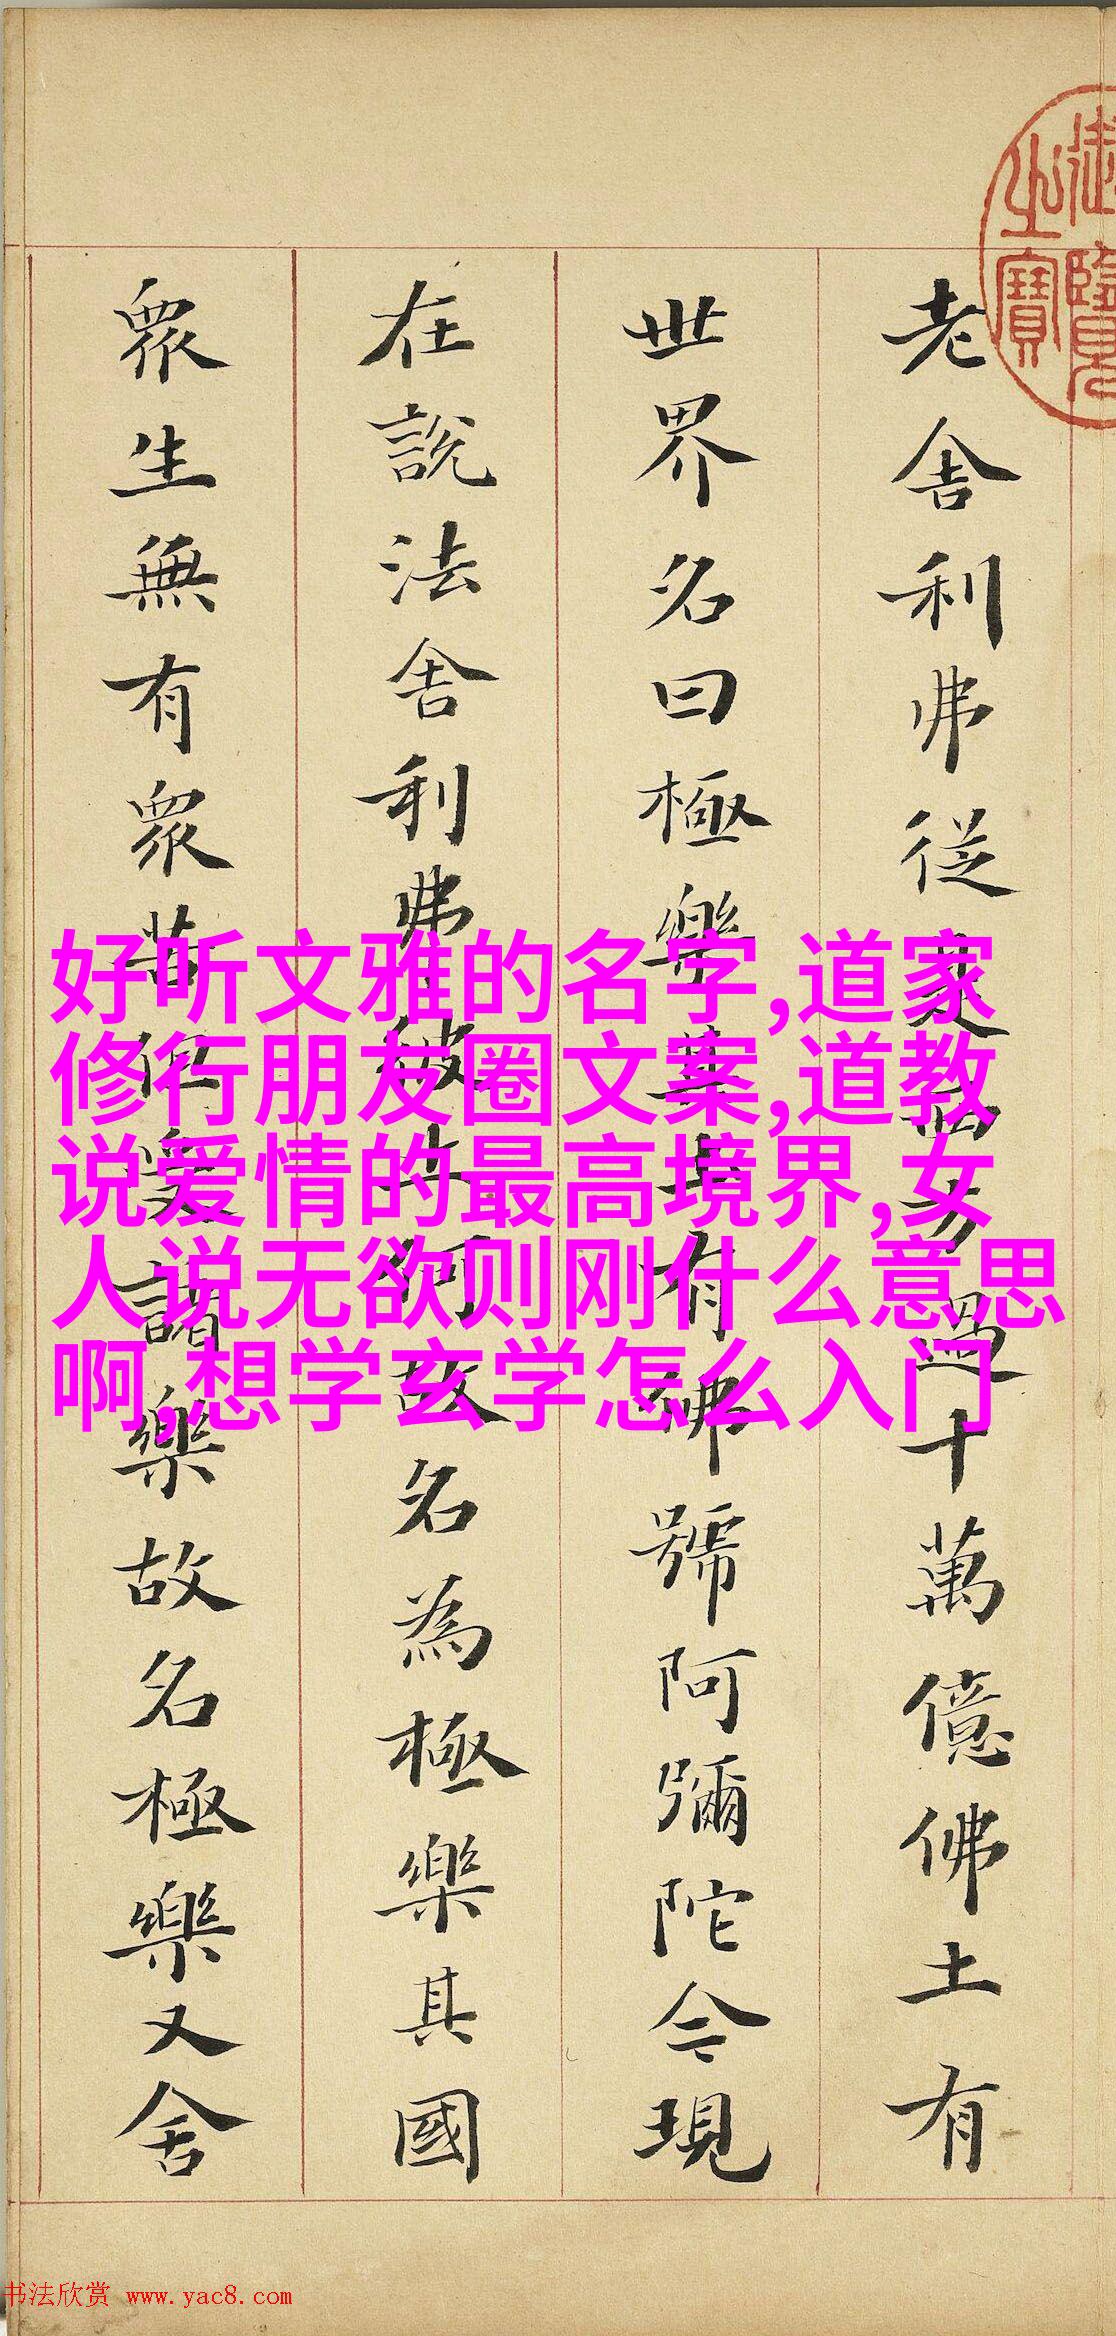 御覽之寶
老舍利弗從是西方過十萬億佛土有
世界名曰極樂其土有佛號阿彌陀今現
在說法舍利弗彼土何故名為極樂其國
眾生無有眾苦但受諸樂故名極樂又舍
好听文雅的名字,道家
修行朋友圈文案,道教
说爱情的最高境界,女
人说无欲则刚什么意思
啊,想学玄学怎么入门
书法欣赏 www.yac8.com